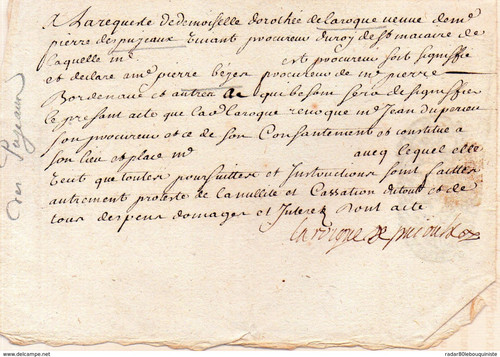 A la requeste de demoiselle dorothée de laroque veuve de me
pierre despujeaux vivant procureur du roy de st macaire de
laquelle me est procureur soit signiffie
et declare a me pierre bézes procureur de me pierre
Bordenaue et autres a qui besoin sera de signiffier
le presant acte que lad laroque revoque me Jean duperieu
son procureur et ce de son Consantement et constitue a
son lieu et place me avecq lequel elle
veut que toutes poursuittes et Instructions soint faittes
autrement proteste de la nullité et Cassation du tout et de
tous despens domages et Interez dont acte
laroque
des Pujeaux
delcampe.net
radar80lebouquiniste